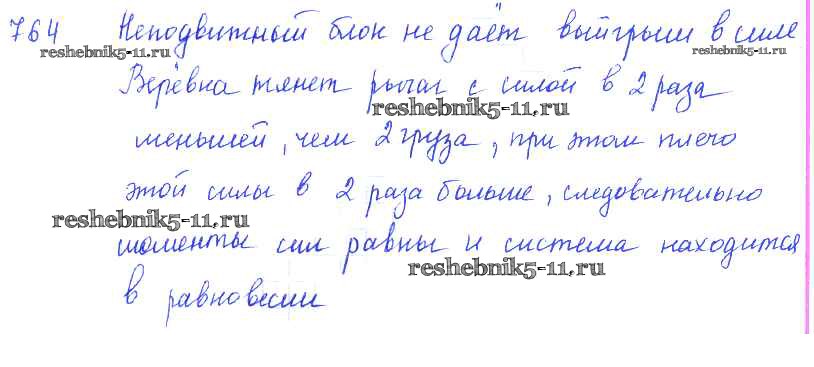 764 Неподвижный блок не даёт выигрыш в силе
reshebnik5-11.ru reshebnik5-11.ru
Верёвка тянет рычаг с силой в 2 раза
reshebnik5-11.ru
меньшей, чем 2 груза, при этом плечо
этой силы в 2 раза больше, следовательно
reshebnik5-11.ru
моменты сил равны и система находится
reshebnik5-11.ru
в равновесии